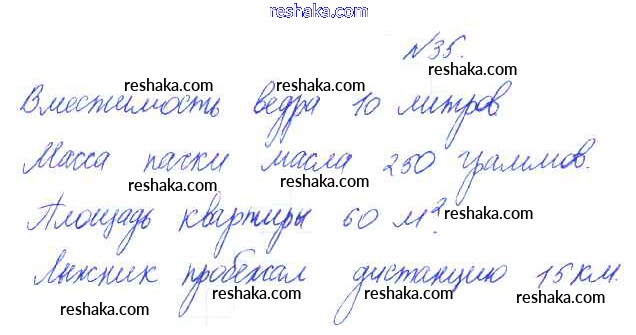 reshaka.com
№35.
reshaka.com
reshaka.com reshaka.com reshaka.com
Вместимость ведра 10 литров
Масса пачки масла 250 граммов.
reshaka.com reshaka.com reshaka.com
Площадь квартиры 60 м².
reshaka.com reshaka.com reshaka.com
Лыжник пробежал дистанцию 15 км.
reshaka.com reshaka.com reshaka.com